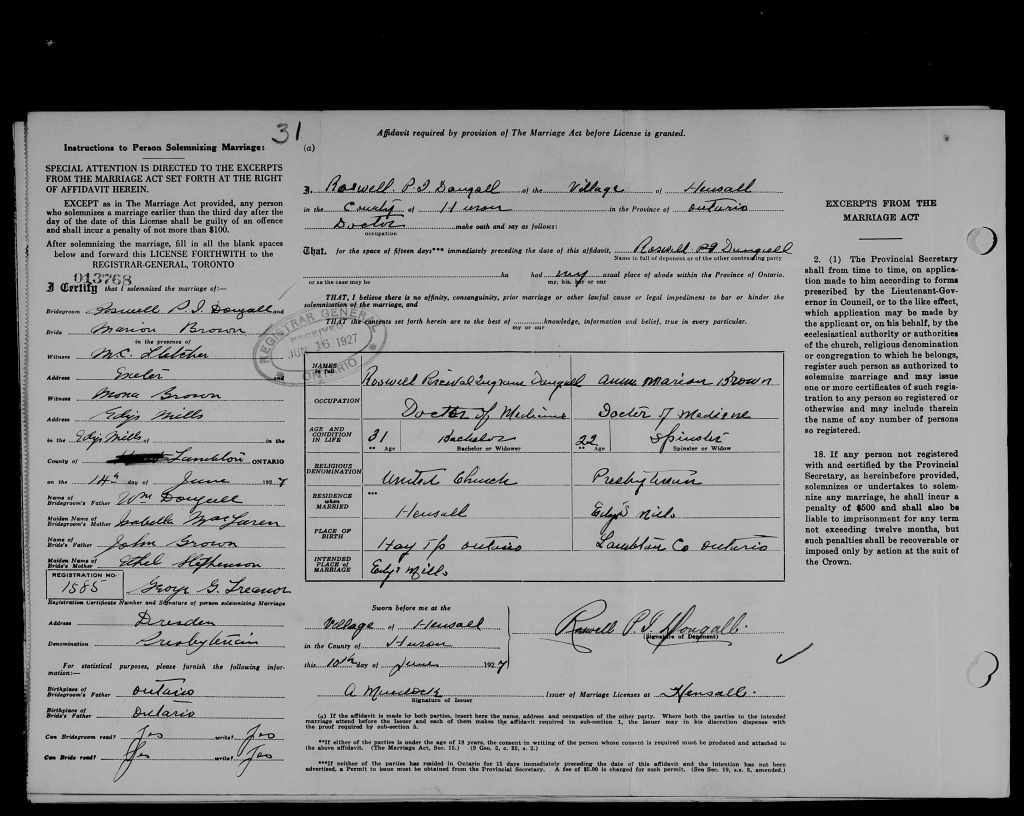 31
Instructions to Person Solemnizing Marriage:
SPECIAL ATTENTION IS DIRECTED TO THE EXCERPTS
FROM THE MARRIAGE ACT SET FORTH AT THE RIGHT
OF AFFIDAVIT HEREIN.
EXCEPT as in The Marriage Act provided, any person
who solemnizes a marriage earlier than the third day after the
day of the date of this License shall be guilty of an offence
and shall incur a penalty of not more than $100.
After solemnizing the marriage, fill in all the blank spaces
below and forward this LICENSE FORTHWITH to the
REGISTRAR-GENERAL, TORONTO
013768
I Certify that I solemnized the marriage of:—
Bridegroom Roswell P. I. Dougall and
Bride Marion Brown
in the presence of
Witness M.C. Fletcher
Address Exeter and
Witness Mona Brown
Address Edys Mills
in the Edys Mills of in the
County of Lambton ONTARIO
on the 14th day of June 1927
Name of Bridegroom's Father Wm Dougall
Maiden Name of Bridegroom's Mother Isabella MacLaren
Name of Bride's Father John Brown
Maiden Name of Bride's Mother Ethel Stephenson
REGISTRATION NO.
1585 George G. Treanor
Registration Certificate Number and Signature of person solemnizing Marriage
Address Dresden
Denomination Presbyterian
For statistical purposes, please furnish the following information:—
Birthplace of Bridegroom's Father Ontario
Birthplace of Bride's Father Ontario
Can Bridegroom read? Yes write? Yes
Can Bride read? Yes write? Yes
Affidavit required by provision of The Marriage Act before License is granted.
(a)
I, Roswell P I Dougall of the Village of Hensall
in the County of Huron in the Province of Ontario
Doctor make oath and say as follows:
occupation
That, for the space of fifteen days*** immediately preceding the date of this affidavit, Roswell P I Dungall
Name in full of deponent or of the other contracting party
ha had my usual place of abode within the Province of Ontario.
or as the case may be my, his, her or our
THAT, I believe there is no affinity, consanguinity, prior marriage or other lawful cause or legal impediment to bar or hinder the
solemnization of the marriage, and
THAT the contents set forth herein are to the best of knowledge, information and belief, true in every particular.
my or our
REGISTRAR GENERAL
RECEIVED
JUN 16 1927
ONTARIO
NAMES in full Roswell Dungall Annie Marion Brown
OCCUPATION Doctor of Medicine Doctor of Medicine
AGE AND CONDITION IN LIFE 31 Bachelor 22 Spinster
** Age Bachelor or Widower ** Age Spinster or Widow
RELIGIOUS DENOMINATION United Church Presbyterian
RESIDENCE when MARRIED *** Hensall Edys Mills
PLACE OF BIRTH Hay Tp Ontario Lambton Co Ontario
INTENDED PLACE of MARRIAGE Edys Mills
Sworn before me at the
Village of Hensall
in the County of Huron
this 10th day of June 1927
Roswell P. I. Dougall
(Signature of Deponent)
A Murdock Issuer of Marriage Licenses at Hensall.
Signature of Issuer
(a) If the affidavit is made by both parties, insert here the name, address and occupation of the other party. Where both the parties to the intended
marriage attend before the Issuer and each of them makes the affidavit required in sub-section 1, the Issuer may in his discretion dispense with
the proof required by sub-section 5.
**If either of the parties is under the age of 18 years, the consent in writing of the person whose consent is required must be produced and attached to
the above affidavit. (The Marriage Act, Sec. 15.)
***If neither of the parties has resided in Ontario for 15 days immediately preceding the date of this affidavit and the intention has not been
advertised, a Permit to issue must be obtained from the Provincial Secretary. A fee of $5.00 is charged for such permit.
EXCERPTS FROM THE
MARRIAGE ACT
2. (1) The Provincial Secretary
shall from time to time, on application
made to him according to forms
prescribed by the Lieutenant-Governor
in Council, or to the like effect,
which application may be made by
the applicant or, on his behalf, by the
ecclesiastical authority or authorities
of the church, religious denomination
or congregation to which he belongs,
register such person as authorized to
solemnize marriage and may issue
one or more certificates of such registration
to any person so registered or
otherwise and may include therein
the name of any number of persons
so registered.
18. If any person not registered
with and certified by the Provincial
Secretary, as hereinbefore provided,
solemnizes or undertakes to solemnize
any marriage, he shall incur a
penalty of $500 and shall also be
liable to imprisonment for any term
not exceeding twelve months, but
such penalties shall be recoverable or
imposed only by action at the suit of
the Crown.